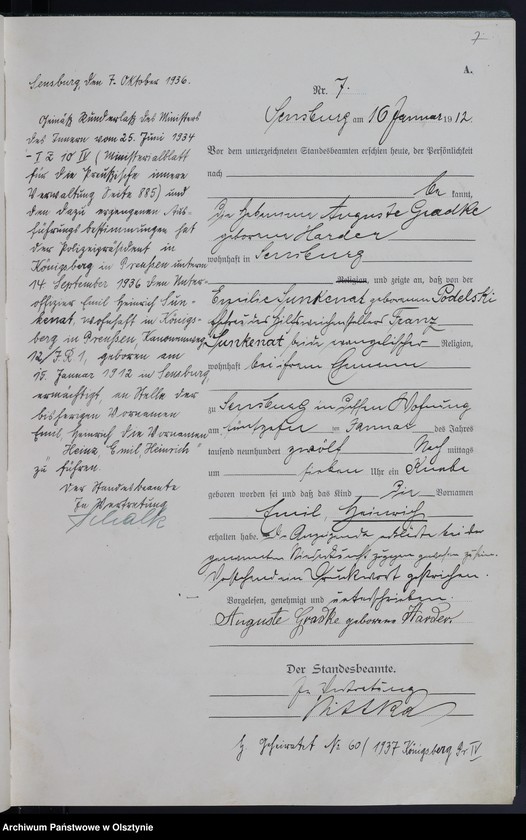 7
A.
Sensburg, den 7. Oktober 1936.
Gemäß Runderlaß des Ministers
des Innern vom 25. Juni 1934
- I Z 10 IV (Ministerialblatt
für die Preußische innere
Verwaltung Seite 885) und
den dazu ergangenen Aus-
führungsbestimmungen hat
der Polizeipräsident in
Königsberg in Preußen unterm
14 September 1936 den Unter-
offizier Emil Heinrich Sun-
kenat, wohnhaft in Königs-
berg in Preußen,
12/J.R 1, geboren am
15 Januar 1912 in Sensburg,
ermächtigt, an Stelle der
bisherigen Vornamen
Emil, Heinrich die Vornamen
"Heinz, Emil, Hinrich"
zu führen.
Der Standesbeamte
In Vertretung
Schalk
Nr. 7.
Sensburg am 16 Januar 1912.
Vor dem unterzeichneten Standesbeamten erschien heute, der Persönlichkeit
nach
be kannt,
die Hebamme Auguste Gradtke
geborene Harder
wohnhaft in Sensburg
Religion, und zeigte an, daß von der
Emilie Sunkenat geborenen Podelski
Ehefrau des Hilfsweichenstellers Franz
Sunkenat, beide evangelischer Religion,
wohnhaft bei ihrem Ehemann
zu Sensburg in dessen Wohnung
am fünfzehn ten Januar des Jahres
tausend neunhundert zwölf Nach mittags
um sieben Uhr ein Knabe
geboren worden sei und daß das Kind die Vornamen
Emil, Heinrich
erhalten habe. Die Anzeigende erklärte bei der
genannten Niederkunft zugegen gewesen zu sein.
Vorstehend ein Druckwort gestrichen.
Vorgelesen, genehmigt und unterschrieben.
Auguste Gradtke geborene Harder
Der Standesbeamte.
In Vertretung
Pittka
Geheiratet № 60/1937 Königsberg Pr IV
Archiwum Państwowe w Olsztynie